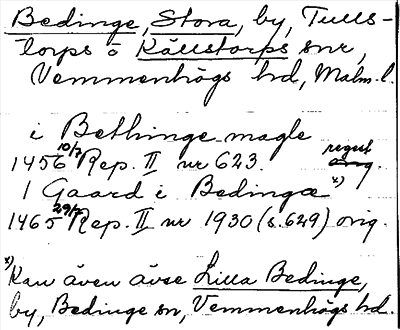 Bedinge, Stora, by, Tulls-
torps o Källstorps snr,
Vemmenhögs hd, Malm. l.
i Bethinge magle
1456 10/7 Rep. II nr 623. regest orig.
1 Gaard i Bedinga x)
1465 29/7 Rep. II nr 1930 (s. 629) orig.
x) Kan även avse Lilla Bedinge,
by, Bedinge sn, Vemmenhögs hd.